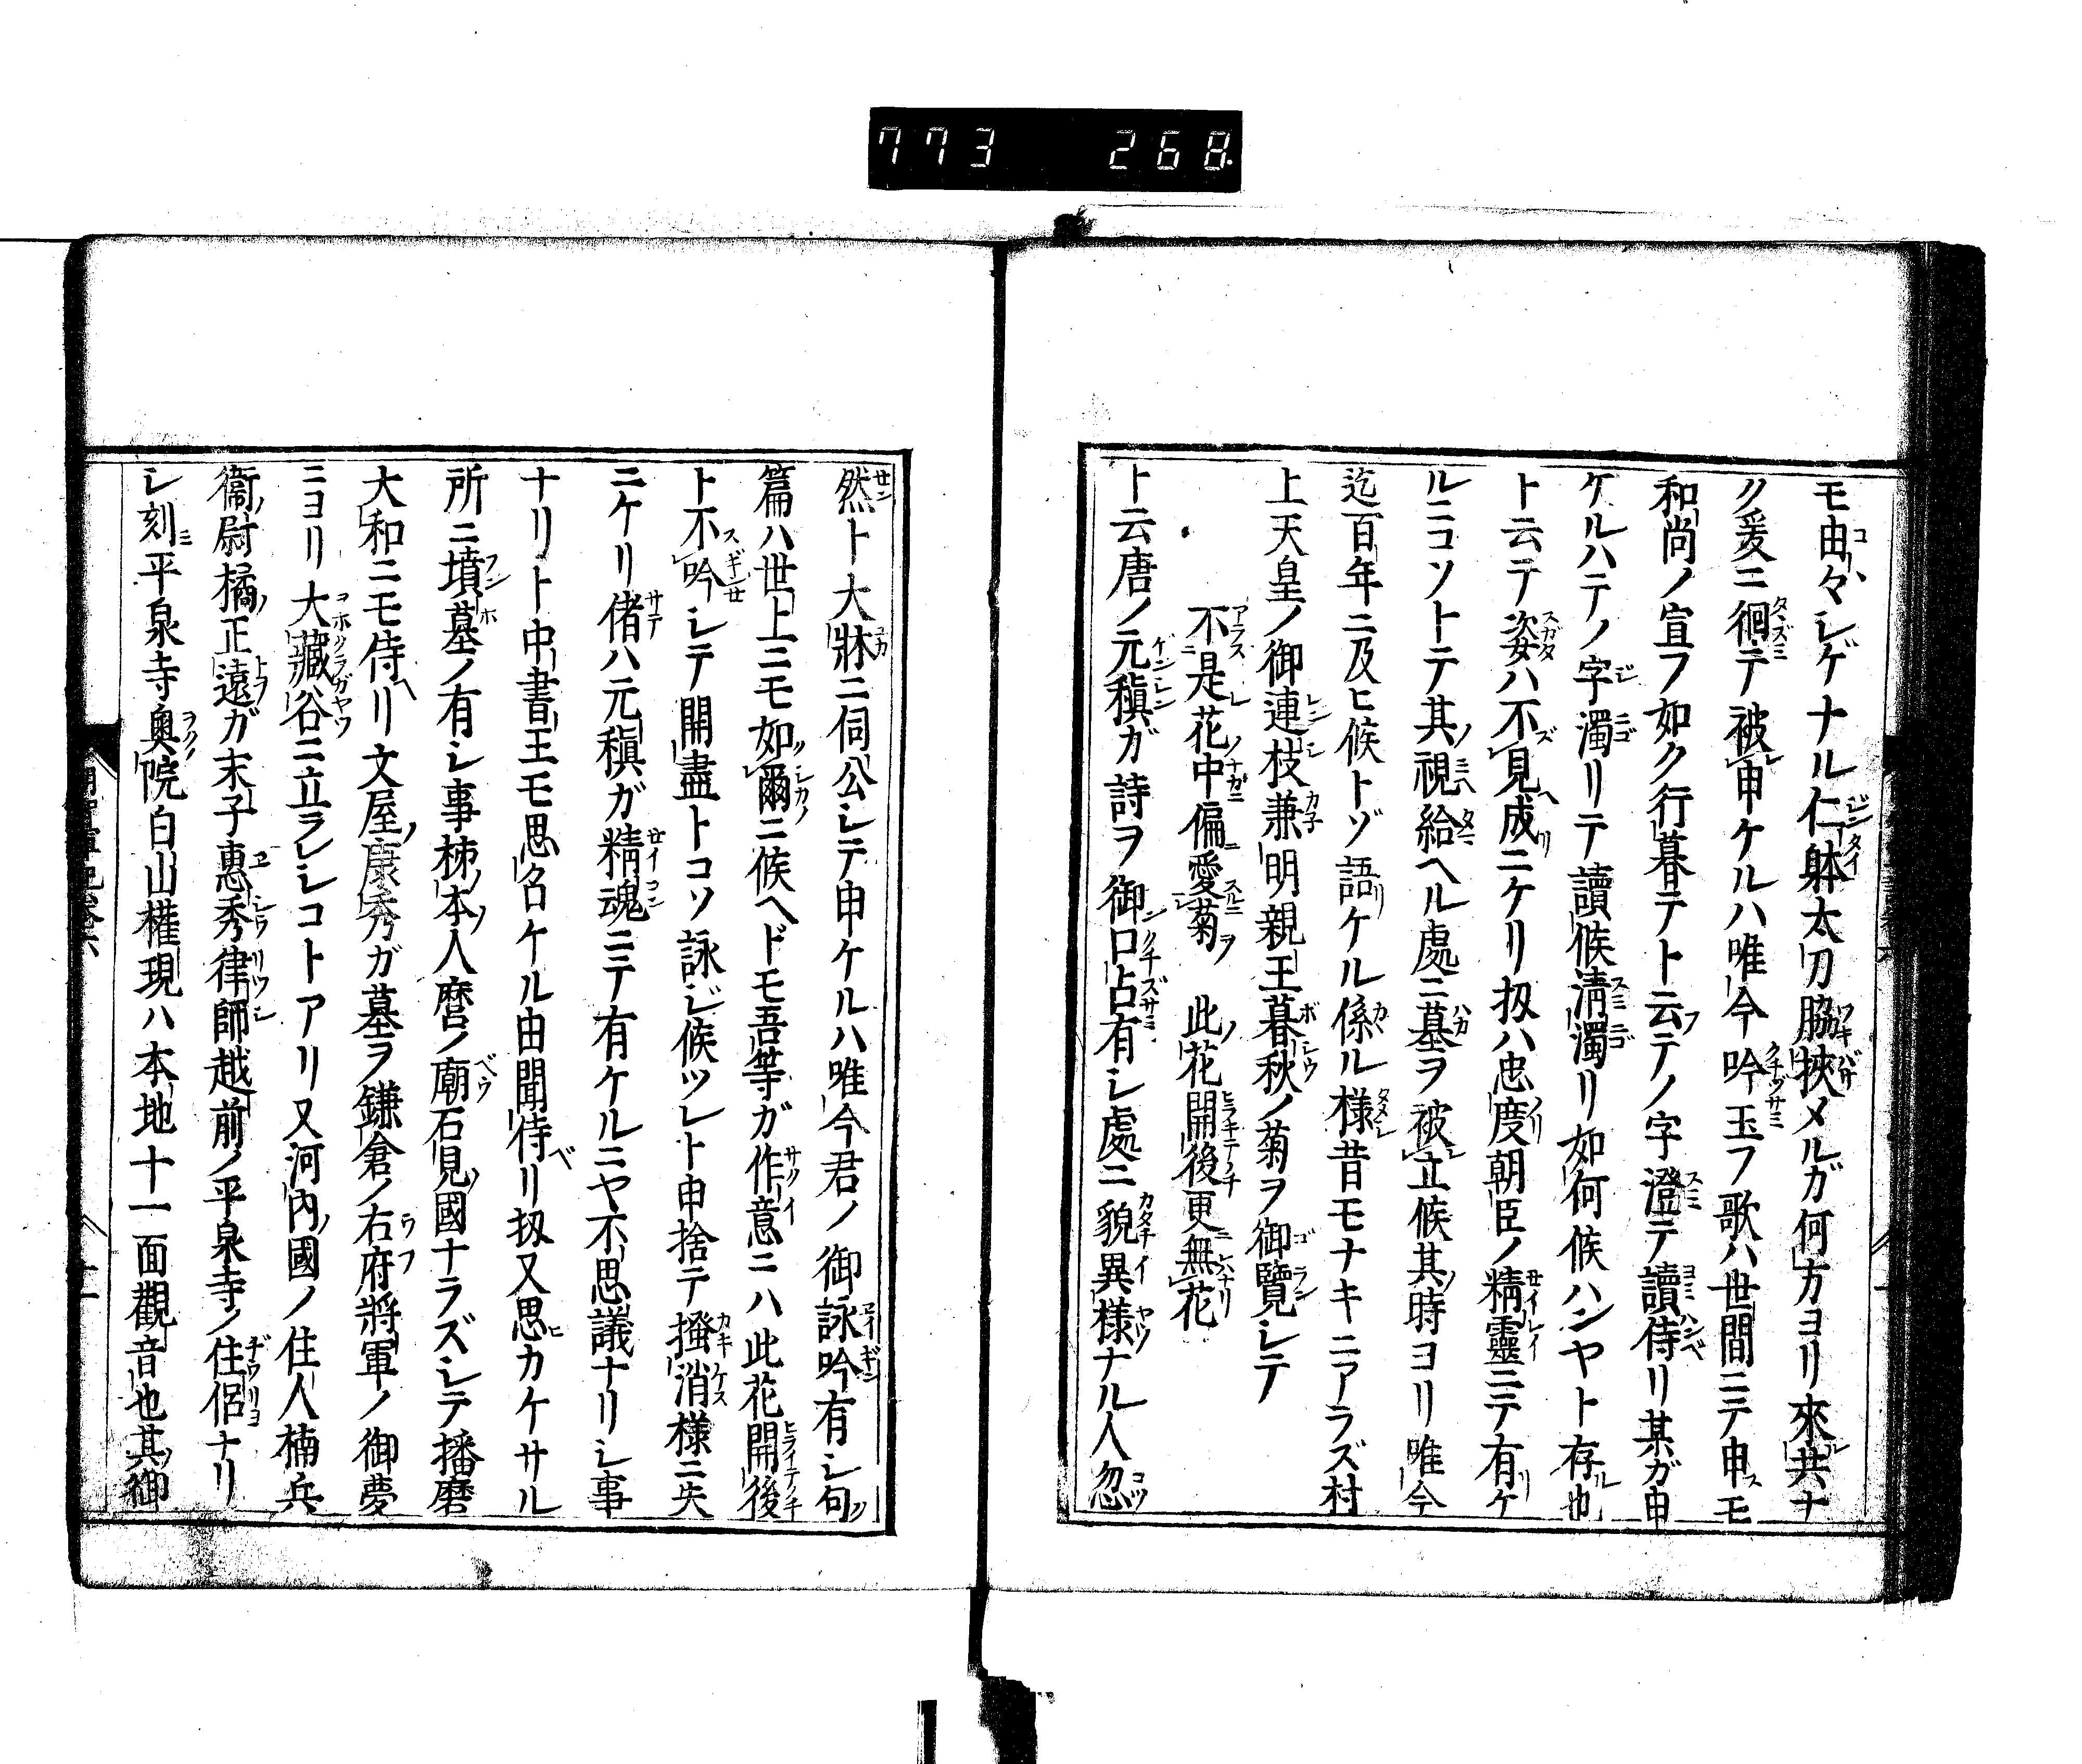 773 268
モ由々シゲナル仁躰太刀脇挾メルガ何方ヨリ來共ナ
ク爰ニ徊テ被申ケルハ唯今吟玉フ歌ハ世間ニテ申モ
和尚ノ宣フ如ク行暮テト云テノ字澄テ讀侍リ某ガ申
ケルハテノ字濁リテ讀候淸濁リ如何候ハンヤト存也
ト云テ姿ハ不見成ニケリ扨ハ忠度朝臣ノ精靈ニテ有ケ
ルニコソトテ其視給ヘル處ニ墓ヲ被立候其時ヨリ唯今
迄百年ニ及ヒ候トゾ語ケル係ル様昔モナキニアラズ村
上天皇ノ御連枝兼明親王暮秋ノ菊ヲ御覽シテ
不是花中偏愛菊 此花開後更無花
ト云唐ノ元稹ガ詩ヲ御口占有シ處ニ貌異様ナル人忽
然ト大牀ニ伺公シテ申ケルハ唯今君ノ御詠吟有シ句
篇ハ世上ニモ如爾ニ候ヘドモ吾等ガ作意ニハ此花開後
ト不吟シテ開盡トコソ詠ジ候ツレト申捨テ搔消様ニ失
ニケリ偖ハ元稹ガ精魂ニテ有ケルニヤ不思議ナリシ事
ナリト中書王モ思名ケル由聞侍リ扨又思カケサル
所ニ墳墓ノ有シ事柹本人麿ノ廟石見國ナラズシテ播磨
大和ニモ侍リ文屋康秀ガ墓ヲ鎌倉ノ右府將軍ノ御夢
ニヨリ大藏谷ニ立ラレシコトアリ又河內國ノ住人楠兵
衞尉橘正遠ガ末子惠秀律師越前ノ平泉寺ノ住侶ナリ
シ刻平泉寺奥院白山權現ハ本地十一面觀音也其御